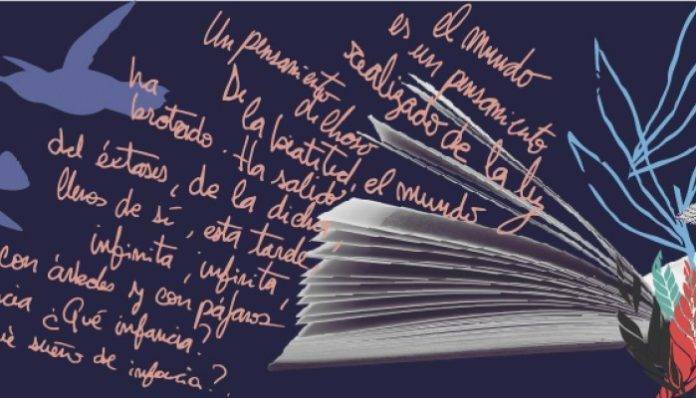 el mundo
es un pensamiento
realizado de la luz
Un pensamiento
dichoso
De la beatitud, el mundo
ha brotado. Ha salido
del éxtasis, de la dicha,
llenos de sí, esta tarde,
infinita, infinita,
con árboles y con pájaros
cia ¿Qué infancia?
é sueño de infancia?